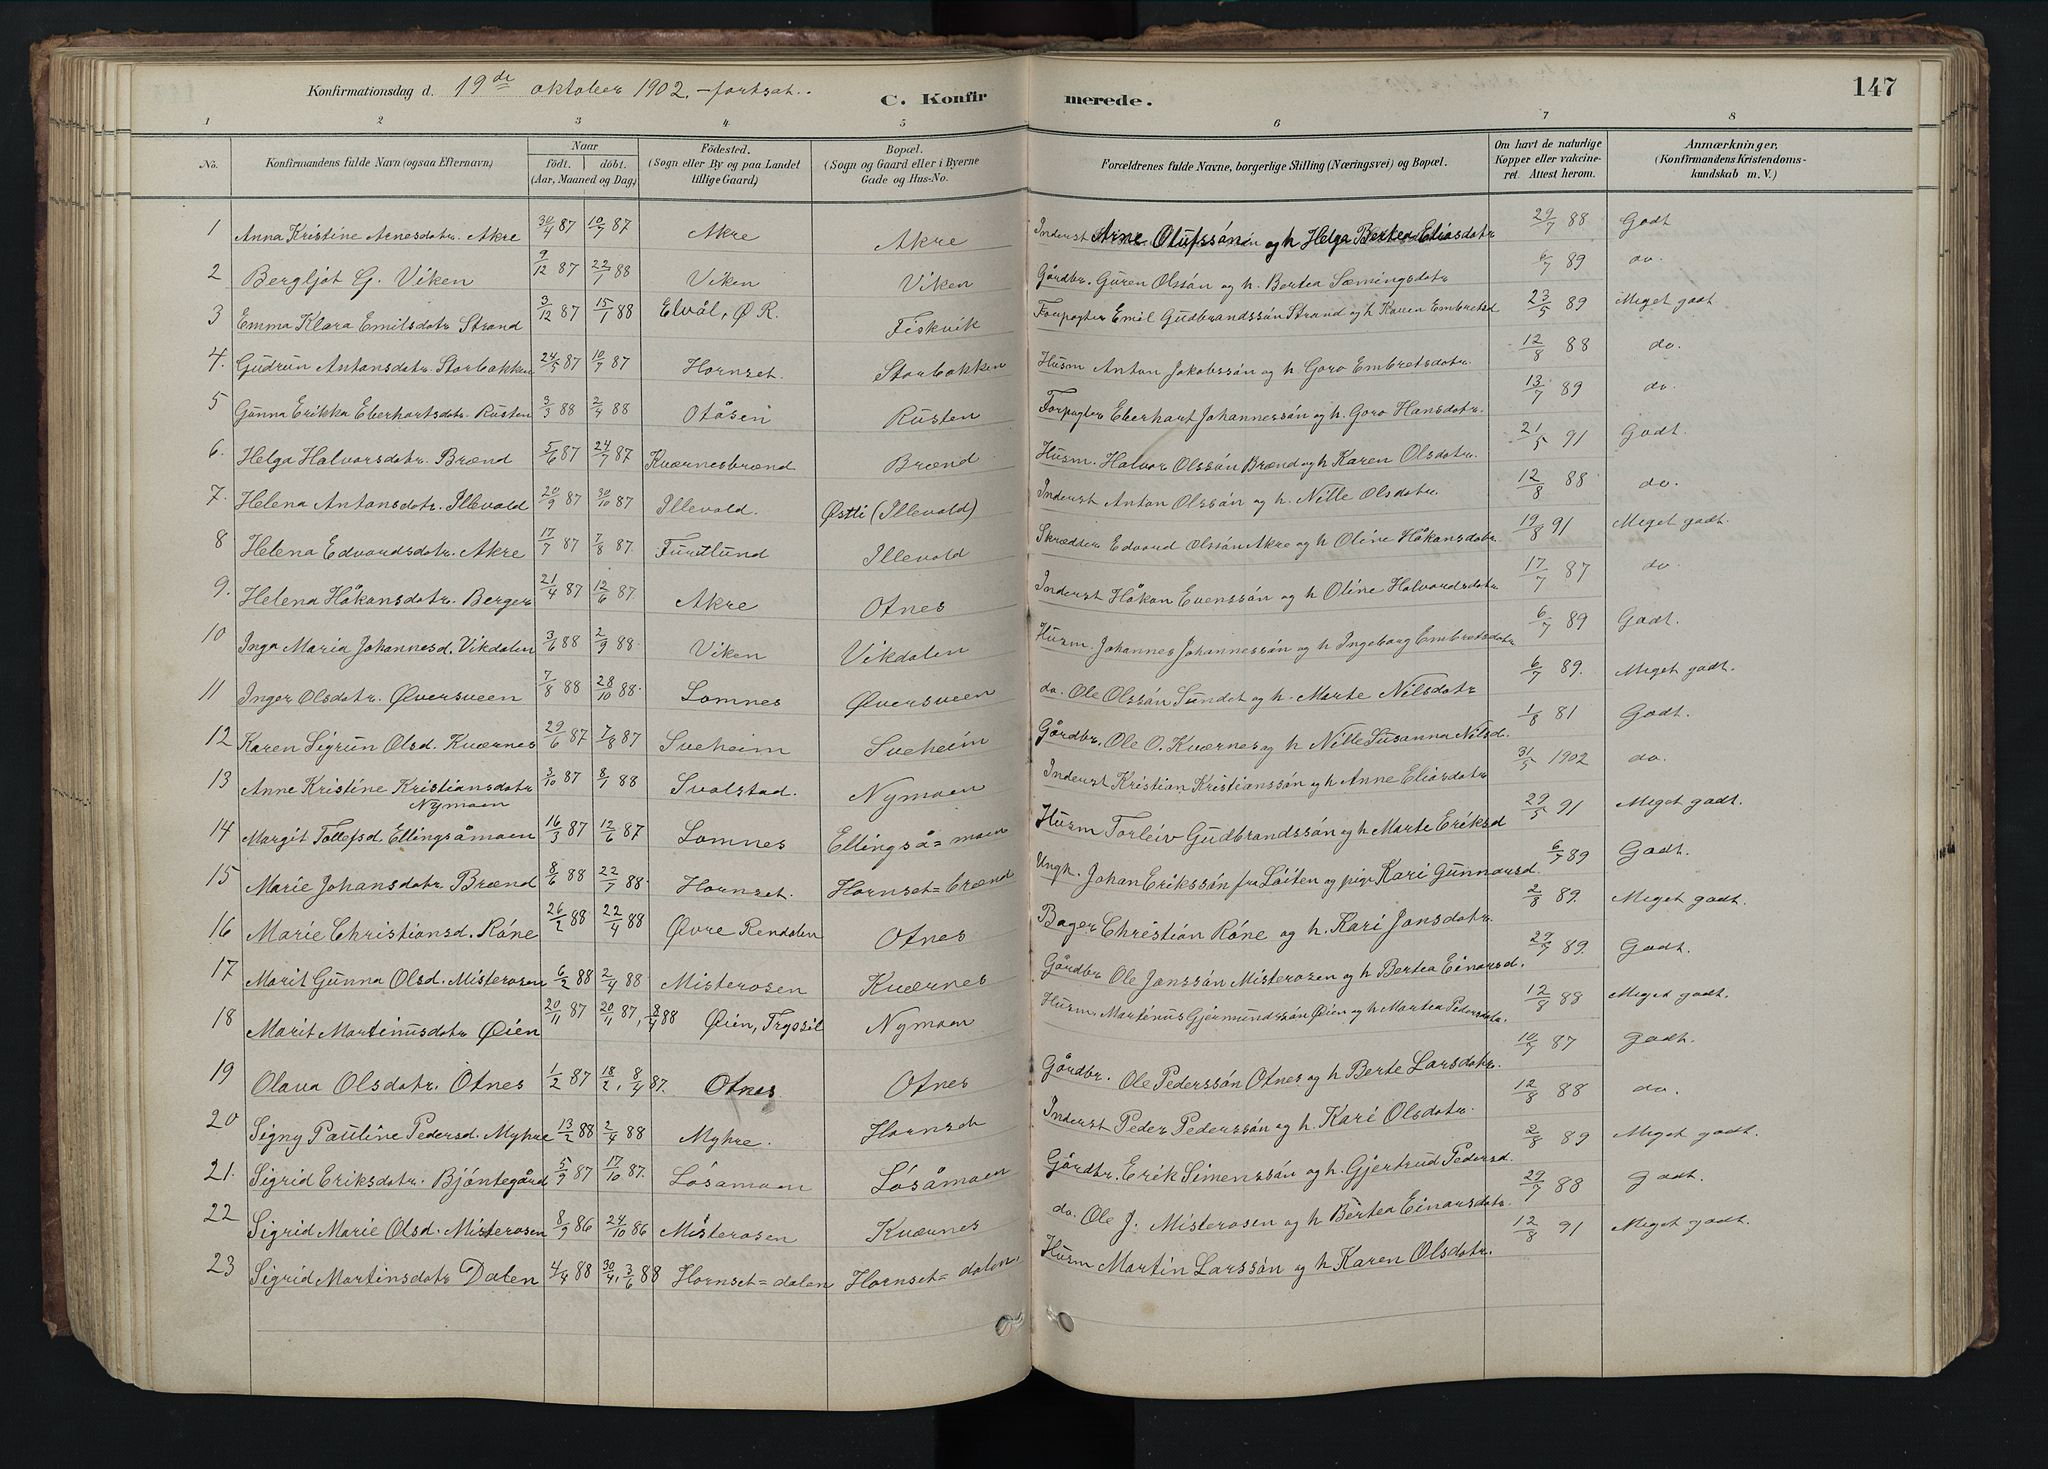 Konfirmationsdag d. 19de oktober 1902. – fortsat.
C. Konfirmerede.
147
1 2 3 4 5 6 7 8
No. Konfirmandens fulde Navn (ogsaa Efternavn) Naar født. døbt. (Aar, Maaned og Dag) Fødested. (Sogn eller By og paa Landet tillige Gaard) Bopæl. (Sogn og Gaard eller i Byerne Gade og Hus-No. Forældrenes fulde Navne, borgerlige Stilling (Næringsvei) og Bopæl. Om havt de naturlige Kopper eller vakcineret. Attest herom. Anmærkninger, (Konfirmandens Kristendomskundskab m. V.)
1 Anna Kristine Arnesdatr. Akre 30/4 87 10/7 87 Akre Akre Inderst Arne Olufssøn og h Helga Bertea Eliasdatr 29/7 88 Godt
2 Bergljot G. Viken 9/12 87 22/1 88 Viken Viken Gårdbr. Guren Olssøn og h. Bertea Sæmingsdatr 6/7 89 do.
3 Emma Klara Emilsdatr Strand 3/12 87 15/1 88 Elvål, Ø R. Fiskvik Forpagter Emil Gudbrandssøn Strand og h Karen Embretsd 23/5 89 Meget godt
4. Gudrun Antonsdatr. Storbakken 24/5 87 10/7 87 Hornset. Storbakken Husm Anton Jakobssøn og h. Goro Embretsdatr. 12/8 88 do.
5 Gunna Erikka Eberhartsdatr. Rusten 3/3 88 2/4 88 Otåsen Rusten Forpagter Eberhart Johannessøn og h. Goro Hansdatr. 13/7 89 do.
6. Helga Halvorsdatr. Brænd 5/6 87 24/7 87 Kværnesbrænd Brænd Husm. Halvor Olssøn Brænd og h Karen Olsdatr. 21/5 91 Godt.
7. Helena Antonsdatr. Illevold 20/9 87 30/10 87 Illevold. Østti (Illevold) Inderst Anton Olssøn og h. Nille Olsdatr. 12/8 88 do.
8 Helena Edvardsdatr. Akre 17/7 87 7/8 87. Furulund Illevold Skrædder Edvard Olssøn Akre og h Oline Håkonsdatr 19/8 91 Meget godt.
9. Helena Håkonsdatr. Berger 21/4 87 12/6 87. Akre Otnes Inderst Håkon Evenssøn og h Oline Halvordsdatr 17/7 87 do.
10 Inga Maria Johannesd. Vikdalen 3/6 88 2/9 88. Viken Vikdalen Husm. Johannes Johannessøn og h Ingeborg Embretsdatr 6/7 89 Godt.
11 Inger Olsdatr. Øversveen 7/8 88 28/10 88. Lomnes Øversveen do. Ole Olssøn Sundet og h. Marte Nilsdatr 6/7 89. Meget godt.
12 Karen Sigrun Olsd. Kværnes 29/6 87 7/8 87 Sveheim Sveheim Gårdbr. Ole O. Kværnes og h Nille Susanna Nilsd. 1/8 81 Godt.
13 Anne Kristine Kristiansdatr Nymoen 3/10 87 8/1 88 Svolstad. Nymoen Inderst Kristian Kristianssøn og h Anne Eliasdatr 31/5 1902 do.
14 Margit Tollefsd. Ellingsåmoen 16/3 87 12/6 87 Lomnes Ellingså=moen Husm Torleiv Gudbrandssøn og h Marte Eriksd 29/5 91 Meget godt.
15 Marie Johansdatr. Brænd 8/6 88 22/7 88. Hornset. Hornset=brænd Ungk. Johan Erikssøn fra Løiten og pige Kari Gunnarsd. 6/7 89 Godt.
16 Marie Christiansd. Røne 26/2 88 22/4 88 Øvre Rendalen Otnes Bager Christian Røne og h. Kari Jonsdatr. 2/8 89. Meget godt.
17 Marit Gunna Olsd. Misterosen 6/2 88 2/4 88 Misterosen Kværnes Gårdbr. Ole Jonssøn Misterosen og h Bertea Einarsd. 29/7 89. Godt.
18 Marit Martinusdatr Øien 20/11 87 20/11 87, 8/4 88 Øien, Trysil Nymoen Husm. Martinus Gjermundssøn Øien og h Martea Pedersdatr. 12/8 88 Meget godt.
19 Olava Olsdatr. Otnes 1/2 87 18/2, 8/4 87. Otnes Otnes Gårdbr. Ole Pederssøn Otnes og h Berte Larsdatr. 10/7 87 Godt.
20 Signy Pauline Pedersd. Myhre 13/2 88 2/4 88 Myhre. Hornset Inderst Peder Pederssøn og h. Kari Olsdatr. 12/8 88 do.
21. Sigrid Eriksdatr. Bjøntegård 5/9 87 17/10 87. Løsåmoen Løsåmoen Gårdbr. Erik Simenssøn og h. Gjertrud Pedersd. 2/8 89 Meget godt.
22 Sigrid Marie Olsd. Misterosen 8/9 86 24/10 86 Misterosen Kværnes do. Ole J. Misterosen og h Bertea Einarsdatr. 29/7 88 Godt.
23 Sigrid Martinsdatr Dalen 4/4 88 30/4, 3/6 88 Hornset=dalen Hornset=dalen Husm Martin Larssøn og h Karen Olsdatr. 12/8 91 Meget godt.